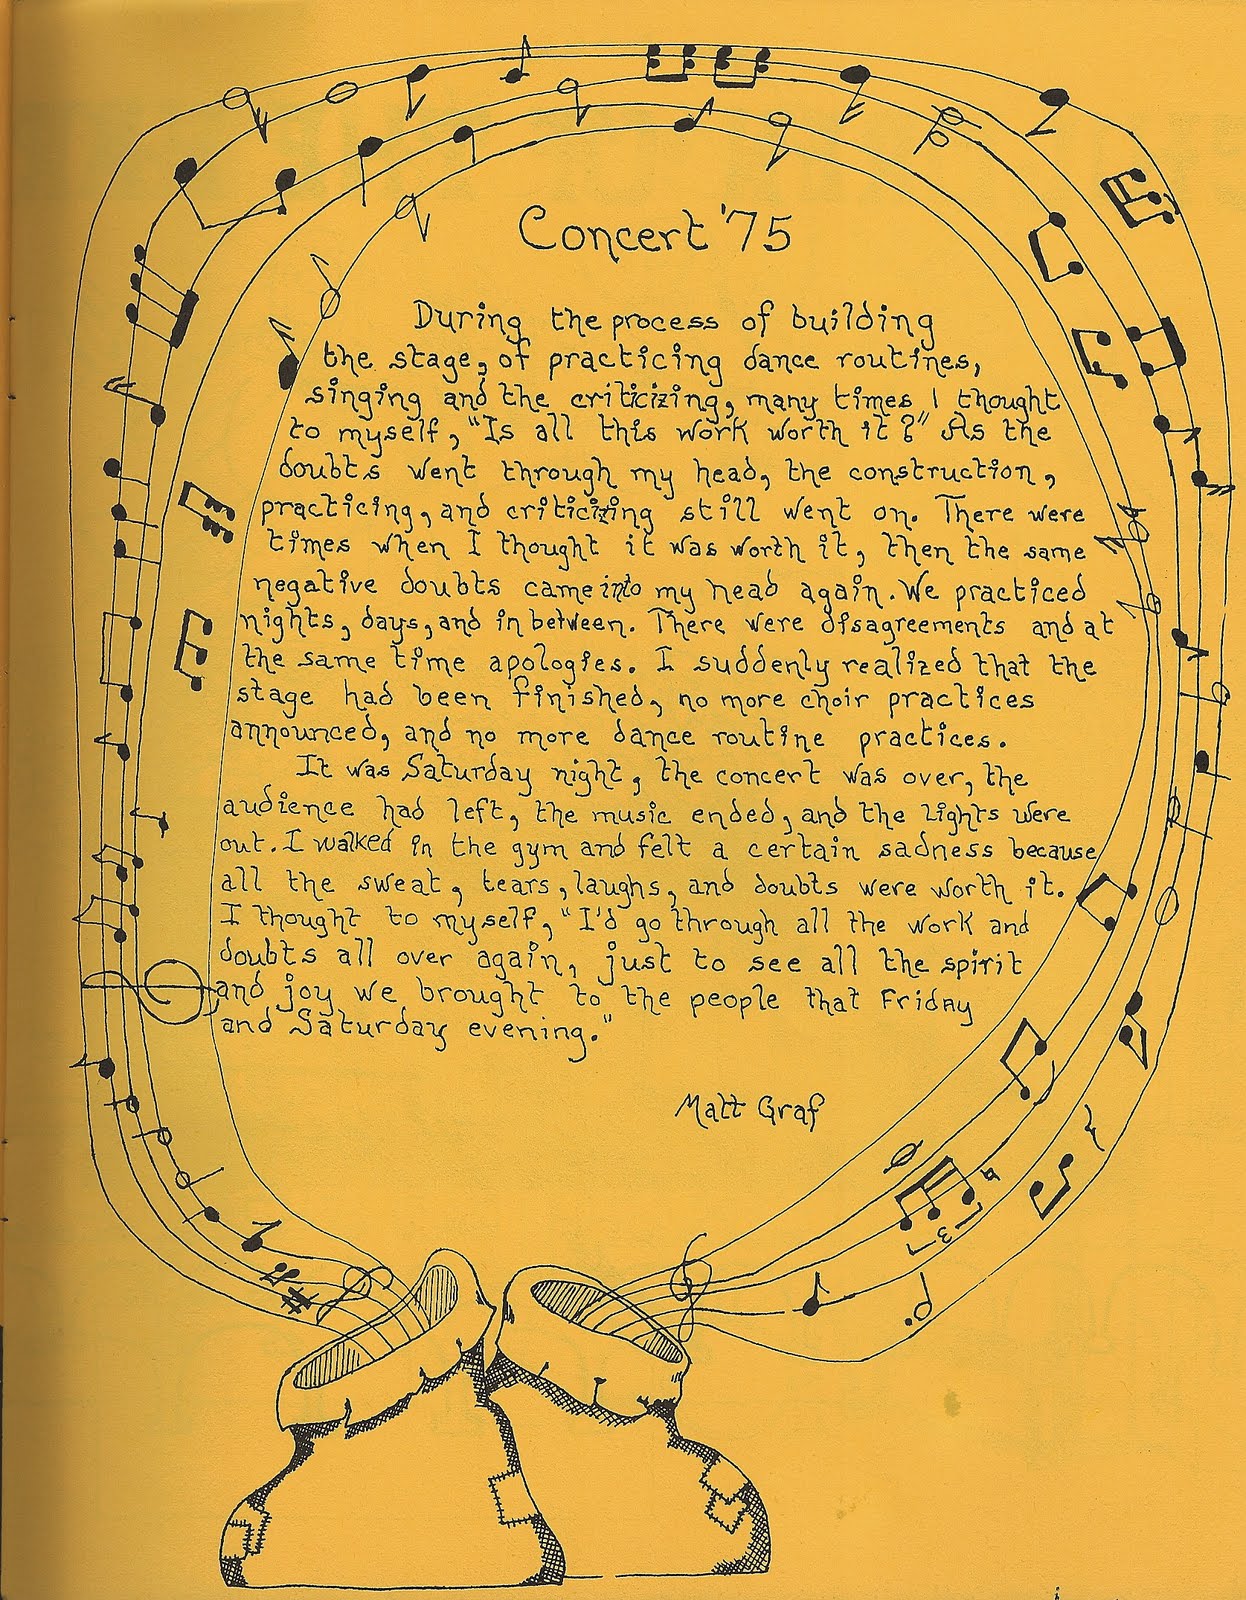 Concert '75
During the process of building
the stage, of practicing dance routines,
singing and the criticizing, many times I thought
to myself, "Is all this work worth it?" As the
doubts went through my head, the construction,
practicing, and criticizing still went on. There were
times when I thought it was worth it, then the same
negative doubts came into my head again. We practiced
nights, days, and in between. There were disagreements and at
the same time apologies. I suddenly realized that the
stage had been finished, no more choir practices
announced, and no more dance routine practices.
It was Saturday night, the concert was over, the
audience had left, the music ended, and the lights were
out. I walked in the gym and felt a certain sadness because
all the sweat, tears, laughs, and doubts were worth it.
I thought to myself, "I'd go through all the work and
doubts all over again, just to see all the spirit
and joy we brought to the people that Friday
and Saturday evening."
Matt Graf